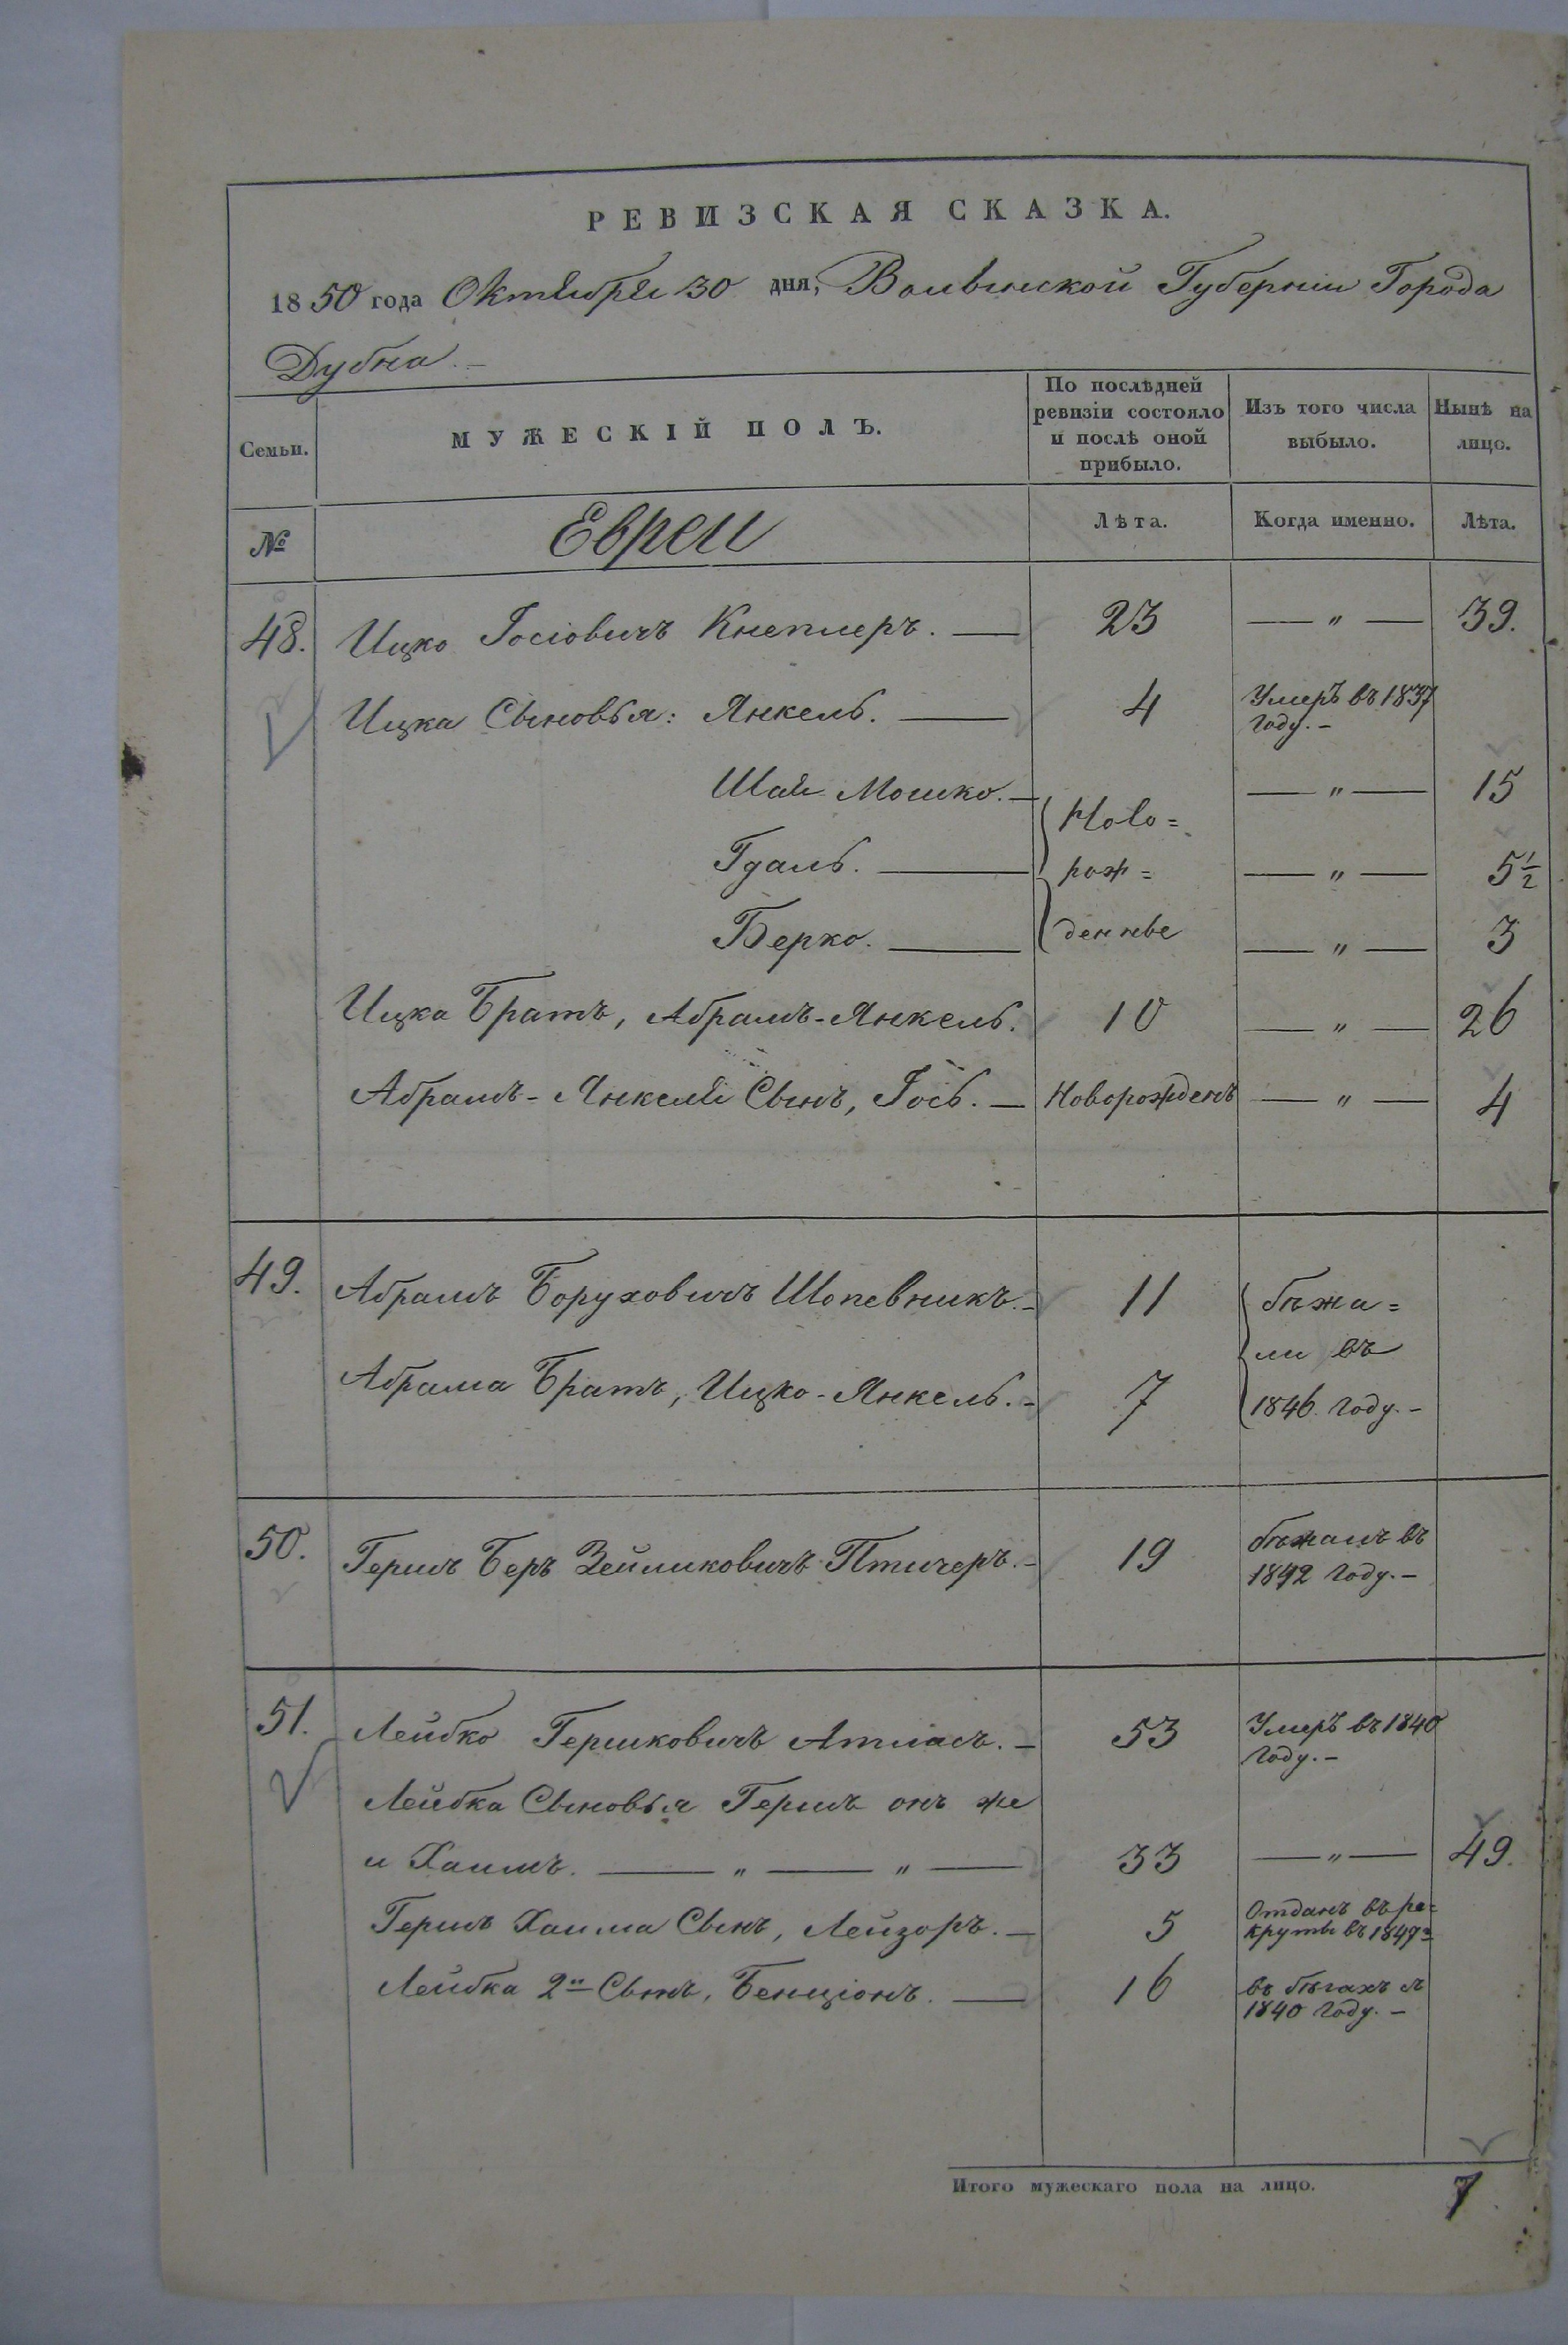 РЕВИЗСКАЯ СКАЗКА.
1850 года Октября 30 дня, Волынской Губерніи Города
Дубна.–
Семьи. МУЖЕСКІЙ ПОЛЪ. По послѣдней ревизіи состояло и послѣ оной прибыло. Изъ того числа выбыло. Нынѣ на лицо.
№ Евреи Лѣта. Когда именно. Лѣта.
48. Ицко Іосіовичъ Кнеплеръ. — 23 — " — 39.
Ицка Сыновья: Янкель. — 4 Умеръ въ 1837 году.–
Шая Мошко. — Ново= — " — 15
Гдаль. — рож= — " — 5 1/2
Берко. — денные — " — 3
Ицка Братъ, Абрамъ-Янкель. 10 — " — 26
Абрамъ-Янкеля Сынъ, Іось. — Новорожденъ — " — 4
49. Абрамъ Боруховичъ Шопевникъ.– 11 бѣжа=
ли въ
Абрама Братъ, Ицко-Янкель.– 7 1846 году.–
50. Гершъ Беръ Зейликовичъ Птичеръ.– 19 бѣжалъ въ 1842 году.–
51. Лейбко Гершковичъ Атласъ.– 53 Умеръ въ 1840 году.–
Лейбка Сыновья Гершъ онъ же
и Хаимъ. — " — " — 33 — " — 49.
Гершъ Хаима Сынъ, Лейзоръ.– 5 Отданъ въ ре=круты въ 1849 г
Лейбка 2й Сынъ, Бенціонъ. — 16 въ бѣгахъ съ 1840 году.–
Итого мужескаго пола на лицо. 7